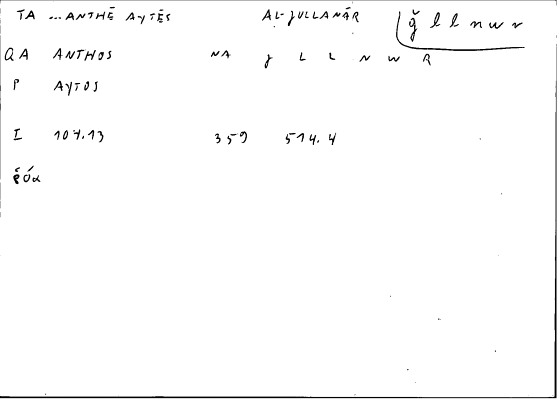 TA ...ANTHĒ AYTĒS AL-JULLANĀR ǧ l l n w r
QA ANTHOS NA J L L N W R
P AYTOS
I 107.13 359 514.4
ῥόα